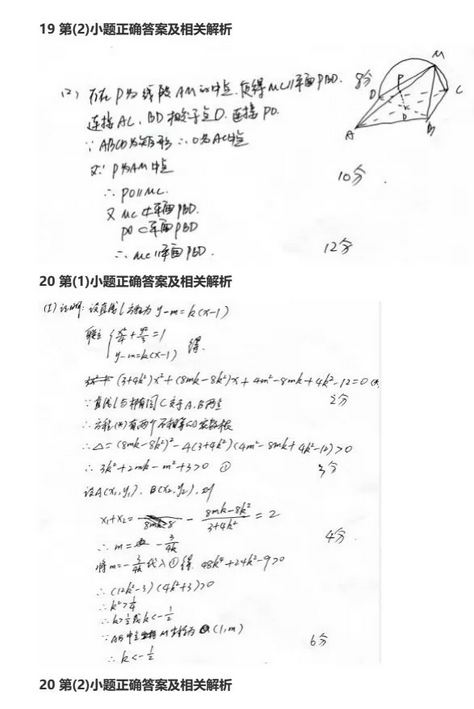 19 第(2)小题正确答案及相关解析
(2) 存在 P为线段AM的中点,使得MC∥平面PBD. 8分
连接AC、BD相交于点O.连接PO.
∵ABCD为矩形 ∴O为AC中点
又∵P为AM中点 10分
∴PO∥MC.
又MC⊄平面PBD.
PO⊂平面PBD
∴MC∥平面PBD. 12分
M
P
D
C
O
A
B
20 第(1)小题正确答案及相关解析
(1) 证明:设直线l方程为 y-m=k(x-1)
联立{x²/4+y²/3=1
y-m=k(x-1) 得.
(3+4k²)x²+(8mk-8k²)x+4m²-8mk+4k²-12=0
∵直线l与椭圆C交于A.B两点 2分
∴方程(*)有两个不相等的实数根
∴△=(8mk-8k²)²-4(3+4k²)(4m²-8mk+4k²-12)>0
∴3k²+2mk-m²+3>0 ① 3分
设A(x₁,y₁). B(x₂,y₂). 则
x₁+x₂= -(8mk-8k²)/(3+4k²) = 2
∴m= -3/4k 4分
将m=-3/4k代入①得 48k⁴+24k²-9>0
∴(12k²-3)(4k²+3)>0
∴k²>1/4
∴k>1/2或k<-1/2
(1,m)
∴k<-1/2 6分
20 第(2)小题正确答案及相关解析